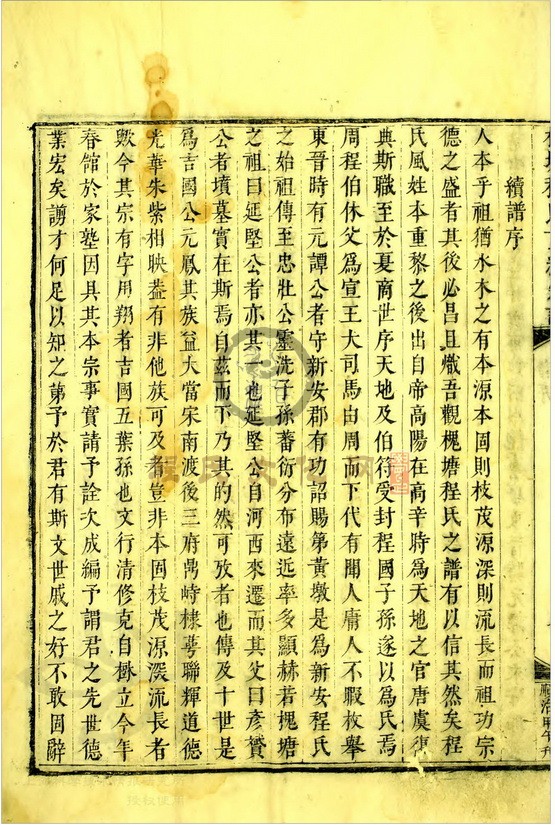 續譜序
人本乎祖猶水木之有本源本固則枝茂源深則流長而祖功宗
德之盛者其後必昌且熾吾觀槐塘程氏之譜有以信其然矣程
氏風姓本重黎之後出自帝高陽在高辛時爲天地之官唐虞復
典斯職至於夏商世序天地及伯符受封程國子孫遂以爲氏焉
周程伯休父爲宣王大司馬由周而下代有聞人庸人不暇枚舉
東晉時有元譚公者守新安郡有功詔賜第黃墩是爲新安程氏
之始祖傳至忠壯公靈洗子孫蕃衍分布遠近率多顯赫若槐塘
之祖曰延堅公者亦其一也延堅公自河西來遷而其父曰彥贇
公者墳墓實在斯焉自茲而下乃其的然可攷者也傳及十世是
爲吉國公元鳳其族益大當宋南渡後三府鼎峙棣萼聯輝道德
光華朱紫相映葢有非他族可及者豈非本固枝茂源深流長者
歟今其宗有字用翔者吉國五葉孫也文行清修克自樹立今年
春館於家塾因具其本宗事實請予詮次成編予謂君之先世德
業宏矣謭才何足以知之第予於君有斯文世戚之好不敢固辭